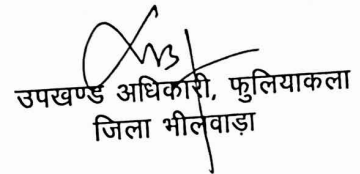 उपखण्ड अधिकारी, फुलियाकला
जिला भीलवाड़ा